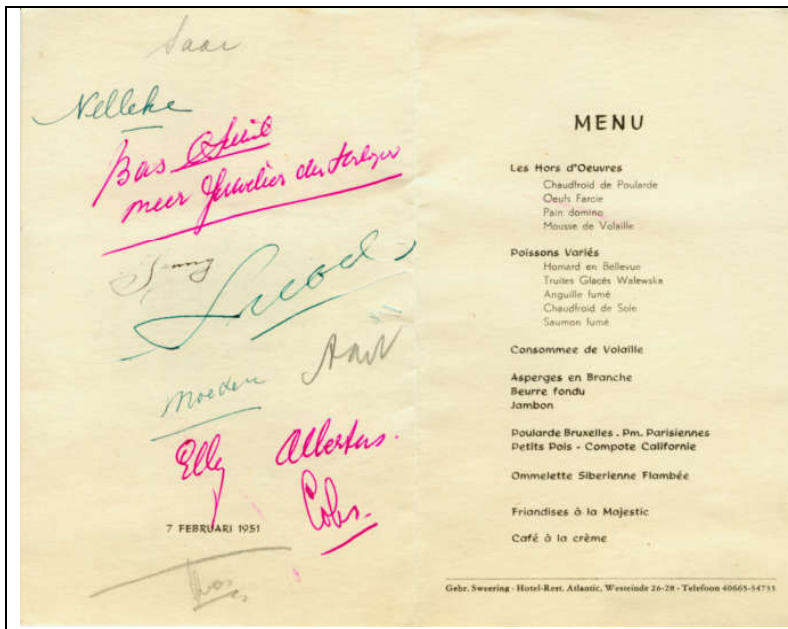 Saar
Nelleke
Bas
meer Juwelier
Jenny
Moeder
Elly Albertus.
Cobs.
7 FEBRUARI 1951
MENU
Les Hors d'Oeuvres
Chaudfroid de Poularde
Oeufs Farcie
Pain domino
Mousse de Volaille
Poissons Variés
Homard en Bellevue
Truites Glacés Walewska
Anguille fumé
Chaudfroid de Sole
Saumon fumé
Consommee de Volaille
Asperges en Branche
Beurre fondu
Jambon
Poularde Bruxelles . Pm. Parisiennes
Petits Pois - Compote Californie
Ommelette Siberienne Flambée
Friandises à la Majestic
Café à la crème
Gebr. Sweering - Hotel-Rest. Atlantic, Westeinde 26-28 - Telefoon 40665-54733